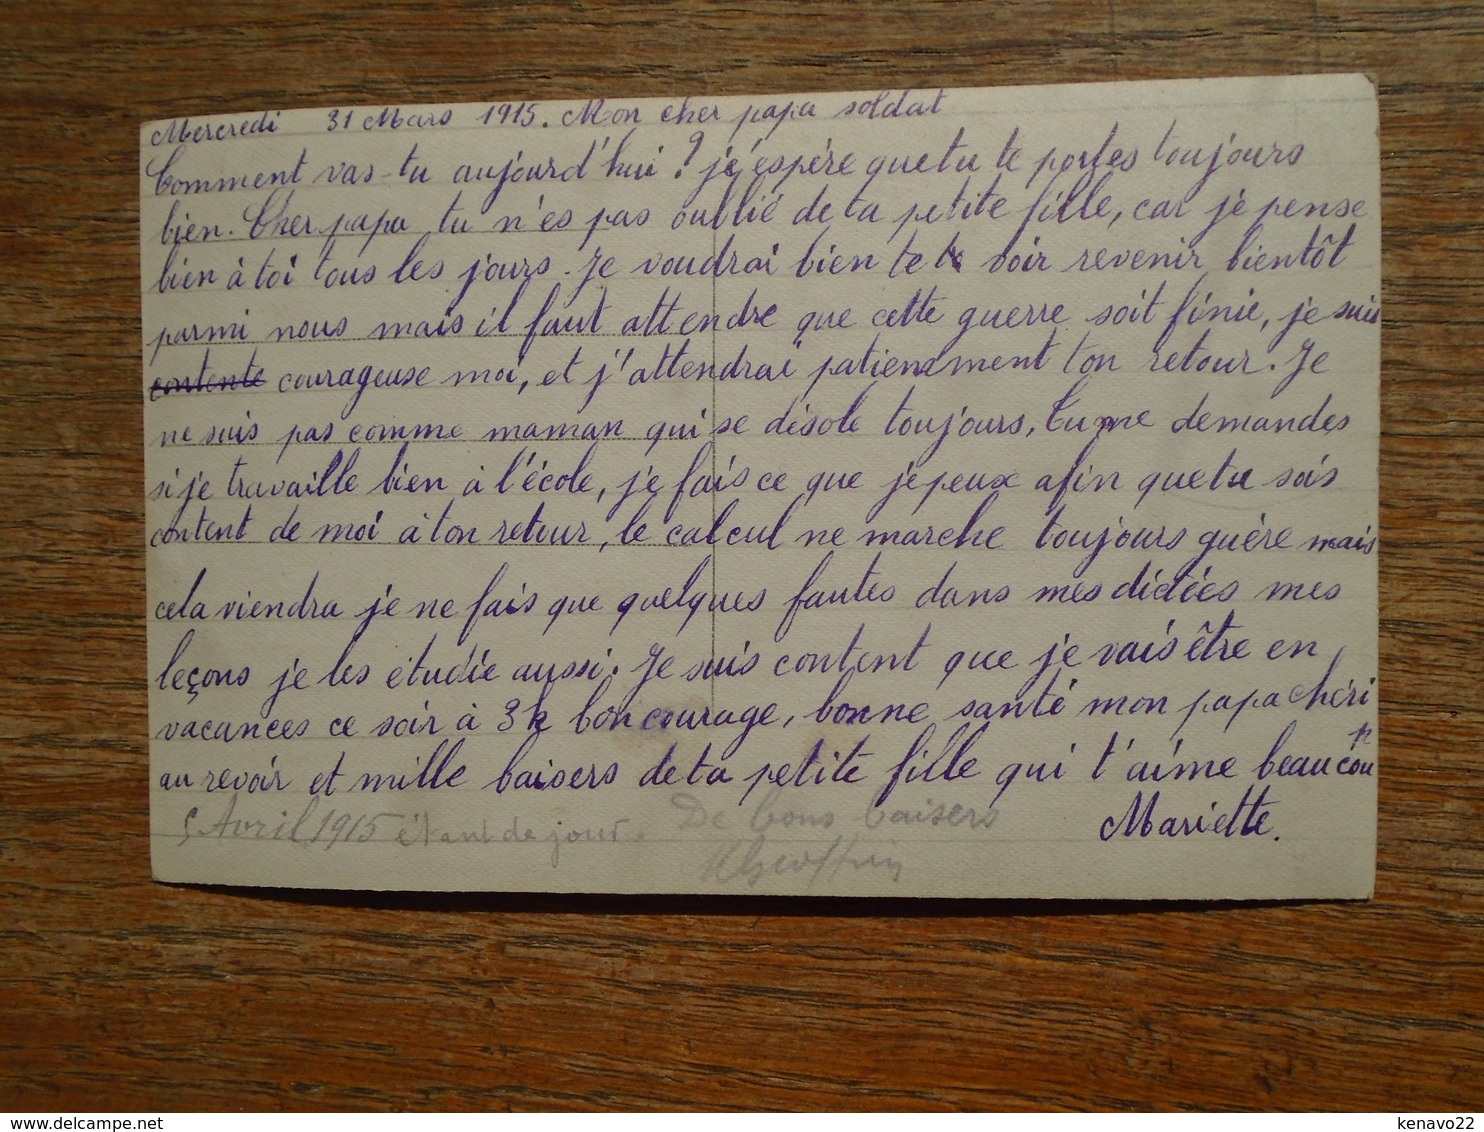 Mercredi 31 Mars 1915. Mon cher papa soldat
Comment vas-tu aujourd'hui ? j'espère que tu te portes toujours
bien. Cher papa tu n'es pas oublié de ta petite fille, car je pense
bien à toi tous les jours. Je voudrai bien te voir revenir bientôt
parmi nous mais il faut attendre que cette guerre soit finie, je suis
contente courageuse moi, et j'attendrai patiemment ton retour. Je
ne suis pas comme maman qui se désole toujours, Tu me demandes
si je travaille bien à l'école, je fais ce que je peux afin que tu sois
content de moi à ton retour, le calcul ne marche toujours guère mais
cela viendra je ne fais que quelques fautes dans mes dictées mes
leçons je les étudie aussi. Je suis content que je vais être en
vacances ce soir à 3h bon courage, bonne santé mon papa chéri
au revoir et mille baisers de ta petite fille qui t'aime beaucoup
Mariette.
5 Avril 1915 étant de jour. De bons baisers
kenavo22